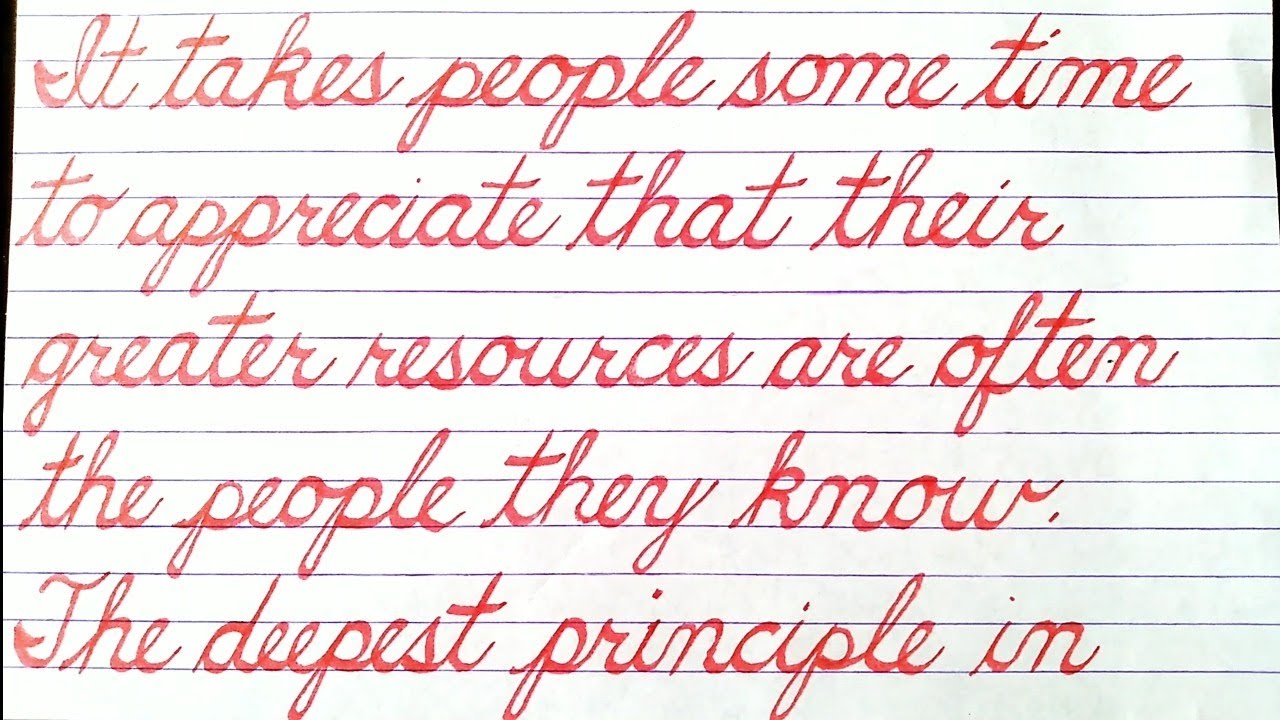 It takes people some time
to appreciate that their
greater resources are often
the people they know.
The deepest principle in